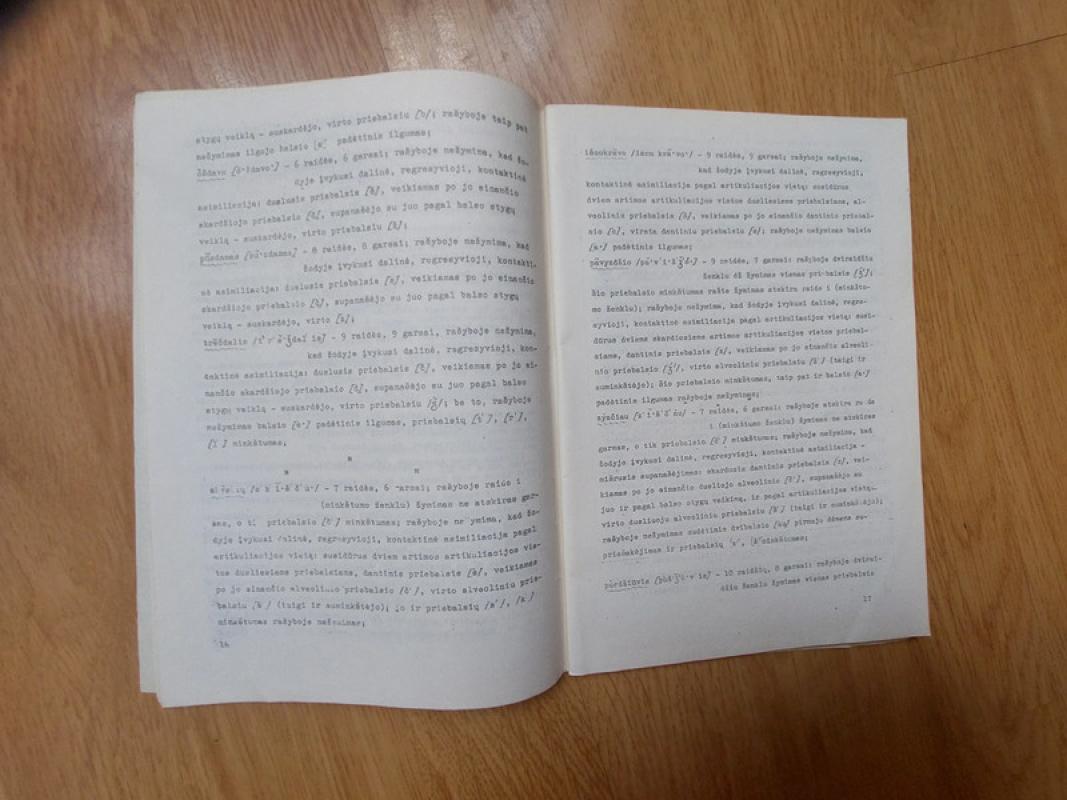 stygų veiklą – suskardėjo, virto priebalsiu [b]; rašyboje taip pat
nežymimas ilgojo balsio padėtinis ilgumas;
– 6 raidės, 6 garsai; rašyboje nežymima, kad žo-
dyje įvykusi dalinė, regresyvioji, kontaktinė
asimiliacija: duslusis priebalsis veikiamas po jo einančio
skardžiojo priebalsio supanašėjo su juo pagal balso stygų
veiklą – suskardėjo, virto priebalsiu
– 8 raidės, 8 garsai; rašyboje nežymima, kad
žodyje įvykusi dalinė, regresyvioji, kontakti-
nė asimiliacija: duslusis priebalsis veikiamas po jo einančio
skardžiojo priebalsio supanašėjo su juo pagal balso stygų
veiklą – suskardėjo, virto
– 9 raidės, 9 garsai, rašyboje nežymima,
kad žodyje įvykusi dalinė, regresyvioji, kon-
taktinė asimiliacija: duslusis priebalsis veikiamas po jo ei-
nančio skardžiojo priebalsio supanašėjo su juo pagal balso
stygų veiklą – suskardėjo, virto priebalsiu be to, rašyboje
nežymimas balsio padėtinis ilgumas, priebalsių
minkštumas;
– 7 raidės, 6 garsai; rašyboje raide i
(minkštumo ženklu) žymimas ne atskiras gar-
sas, o priebalsio minkštumas; rašyboje kad žo-
dyje įvykusi dalinė, regresyvioji, kontaktinė asimiliacija pagal
artikuliacijos vietą: susidūrus dviem artimos artikuliacijos vie-
tos dusliesiems priebalsiams, dantinis priebalsis veikiamas
po jo einančio alveolinio priebalsio virto alveoliniu prie-
balsiu (taigi ir suminkštėjo); jo ir priebalsių
minkštumas rašyboje nežymimas;
16
– 9 raidės, 9 garsai; rašyboje nežymima,
kad žodyje įvykusi dalinė, regresyvioji,
kontaktinė asimiliacija pagal artikuliacijos vietą: susidūrus
dviem artimos artikuliacijos vietos dusliesiems priebalsiams, al-
veolinis priebalsis veikiamas po jo einančio dantinio priebal-
sio virsta dantiniu priebalsiu rašyboje nežymimas balsio
padėtinis ilgumas;
– 9 raidės, 7 garsai: rašyboje dviraidžiu
ženklu dž žymimas vienas priebalsis
šio priebalsio minkštumas rašte žymimas atskira raide i (minkštu-
mo ženklu); rašyboje nežymima, kad žodyje įvykusi dalinė, regre-
syvioji, kontaktinė asimiliacija pagal artikuliacijos vietą: susi-
dūrus dviems skardiesiems artimos artikuliacijos vietos priebal-
siams, dantinis priebalsis veikiamas po jo einančio alveoli-
nio priebalsio virto alveoliniu priebalsiu (taigi ir
suminkštėjo); šio priebalsio minkštumas, taip pat ir balsio
padėtinis ilgumas rašyboje nežymimas;
– 7 raidės, 6 garsai: rašyboje atskira
i (minkštumo ženklu) žymimas ne atskiras
garsas, o tik priebalsio minkštumas; rašyboje nežymima, kad
žodyje įvykusi dalinė, regresyvioji, kontaktinė asimiliacija –
mišrusis supanašėjimas: skardusis dantinis priebalsis vei-
kiamas po jo einančio dusliojo alveolinio supanašėjo su
juo ir pagal balso stygų veikimą, ir pagal artikuliacijos vietą –
virto dusliuoju alveoliniu priebalsiu (taigi ir suminkštėjo);
rašyboje nežymimas sudėtinio dvibalsio pirmojo dėmens su-
ir priebalsių minkštumas;
– 10 raidžių, 8 garsai: rašyboje dvirai-
džiu ženklu žymimas vienas priebalsis
17